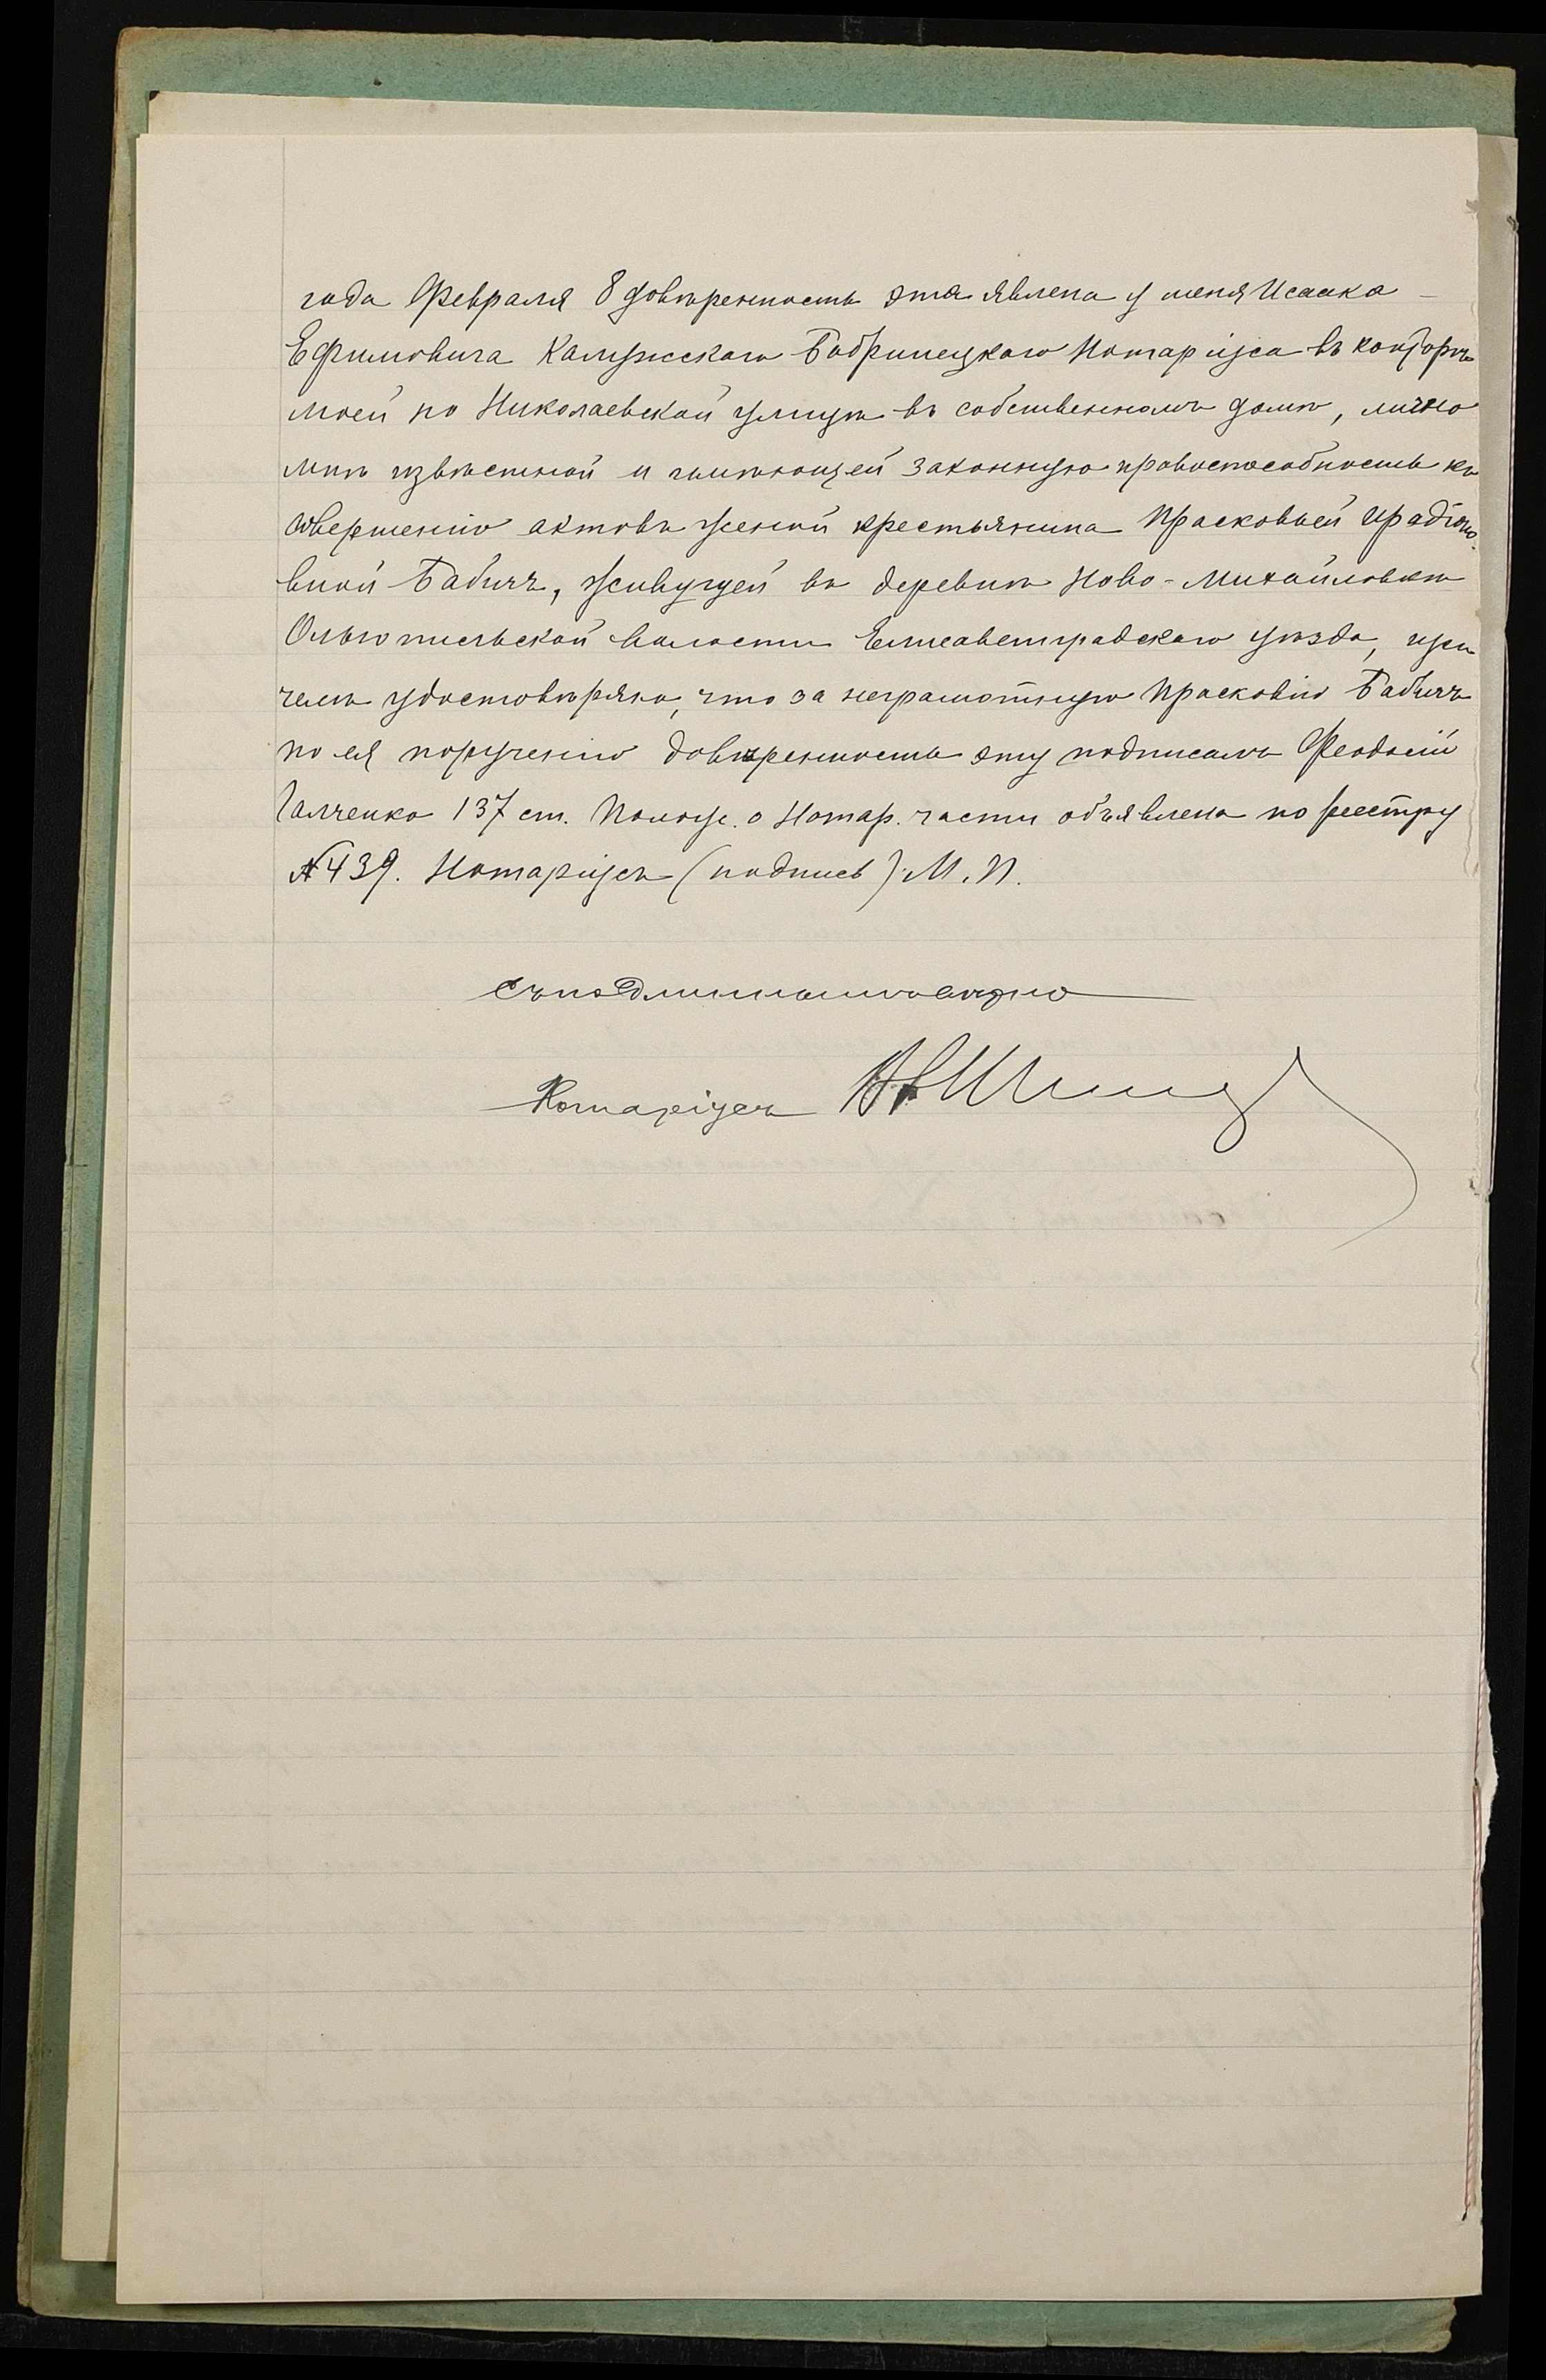 года Февраля 8 довѣренность эта явлена у меня Исаака
Ефимовича Калужскаго Бобринецкаго Нотаріуса въ конторѣ
моей по Николаевской улицѣ въ собственномъ домѣ, лично
мнѣ извѣстной и имѣющей законную правоспособность къ
совершенію актовъ женой крестьянина Прасковьей Ирадіоно-
вной Бабичъ, живущей въ деревнѣ Ново-Михайловкѣ
Ольгопольской волости Елисаветградскаго уѣзда, при
чемъ удостовѣряю, что за неграмотную Прасковію Бабичъ
по ея порученію довѣренность эту подписалъ Феодосій
Галченко 137 ст. Полож. о Нотар. части объявлена по реестру
№ 439. Нотаріусъ (подпись) М. П.
Съ подлиннымъ вѣрно
Нотаріусъ